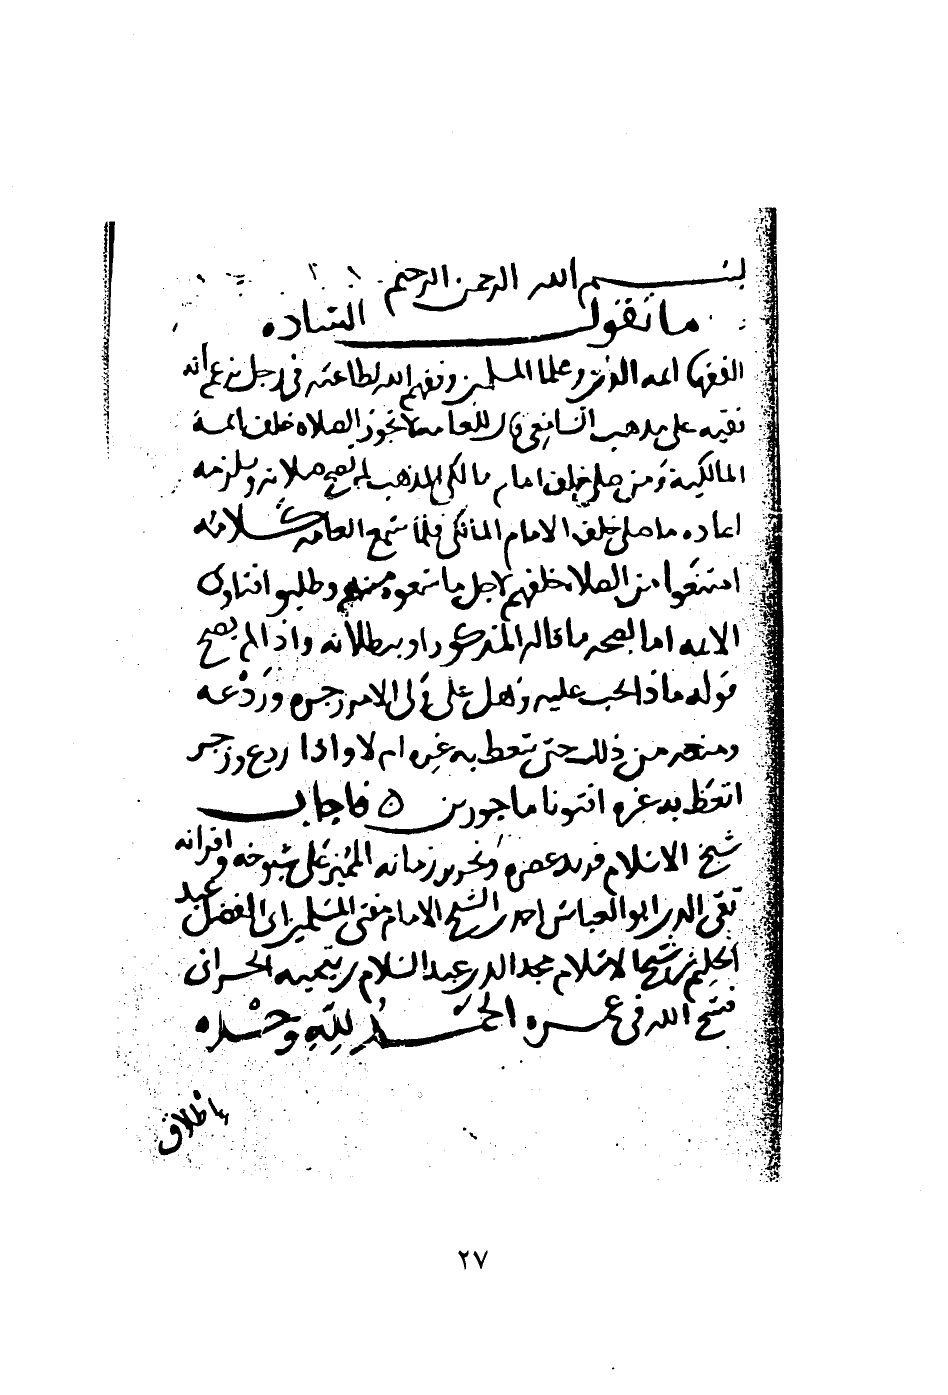 بسم الله الرحمن الرحيم
ما تقول الساده
الفقها ايمه الدين وعلما المسلمين وفقهم الله لطاعته في رجل زعم انه
فقيه على مذهب الشافعي قال للعامه لا تجوز الصلاه خلف ايمة
المالكية ومن صلى خلف امام مالكي المذهب لم تصح صلاته ويلزمه
اعاده ما صلى خلف الامام المالكي فلما سمع العامه كلامه
امتنعوا من الصلاه خلفهم لاجل ما سمعوه منه وطلبو افتاوى
الايمه اما بصحه ما قاله المذكور او ببطلانه واذا لم يصح
قوله ماذا يجب عليه وهل على ولي الامر زجره وردعه
ومنعه من ذلك حتى يتعظ به غيره ام لا واذا ردع وزجر
اتعظ به غيره افتونا ماجورين ه فاجاب
شيخ الاسلام فريد عصره ونحرير زمانه المميز على شيوخه واقرانه
تقي الدين ابو العباس احمد بن الشيخ الامام مفتي المسلمين ابي الفضل عبد
الحليم بن شيخ الاسلام مجد الدين عبد السلام بن تيميه الحراني
فسح الله في عمره الحمد لله وحده
اطلاق
٢٧